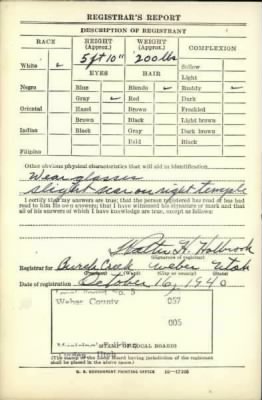 REGISTRAR'S REPORT
DESCRIPTION OF REGISTRANT
RACE
HEIGHT (Approx.)
WEIGHT (Approx.)
COMPLEXION
White ✓
5 ft 10"
200 lbs
Sallow
Light
EYES
HAIR
Negro
Blue
Blonde ✓
Ruddy ✓
Gray ✓
Red
Dark
Oriental
Hazel
Brown
Freckled
Brown
Black
Light brown
Indian
Black
Gray
Dark brown
Bald
Black
Filipino
Other obvious physical characteristics that will aid in identification
Wear glasses
slight scar on right temple
I certify that my answers are true; that the person registered has read or has had
read to him his own answers; that I have witnessed his signature or mark and that
all of his answers of which I have knowledge are true, except as follows:
Walter H. Holbrook
(Signature of registrar)
Registrar for Burch Creek Weber Utah
(Precinct) (Ward) (City or county) (State)
Date of registration October 16, 1940
Weber County
057
005
STAMP OF LOCAL BOARD
(The stamp of the Local Board having jurisdiction of the registrant
shall be placed in the above space.)
U. S. GOVERNMENT PRINTING OFFICE 16—17105